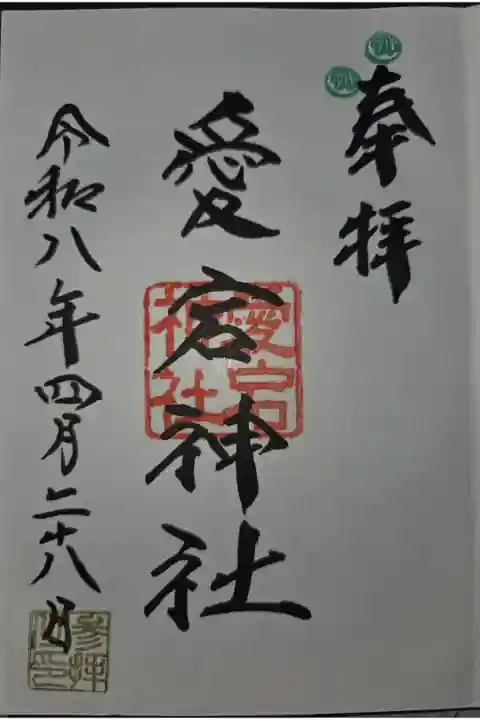 奉拝
愛宕神社
愛宕
神社
令和八年四月二十八日
参拝